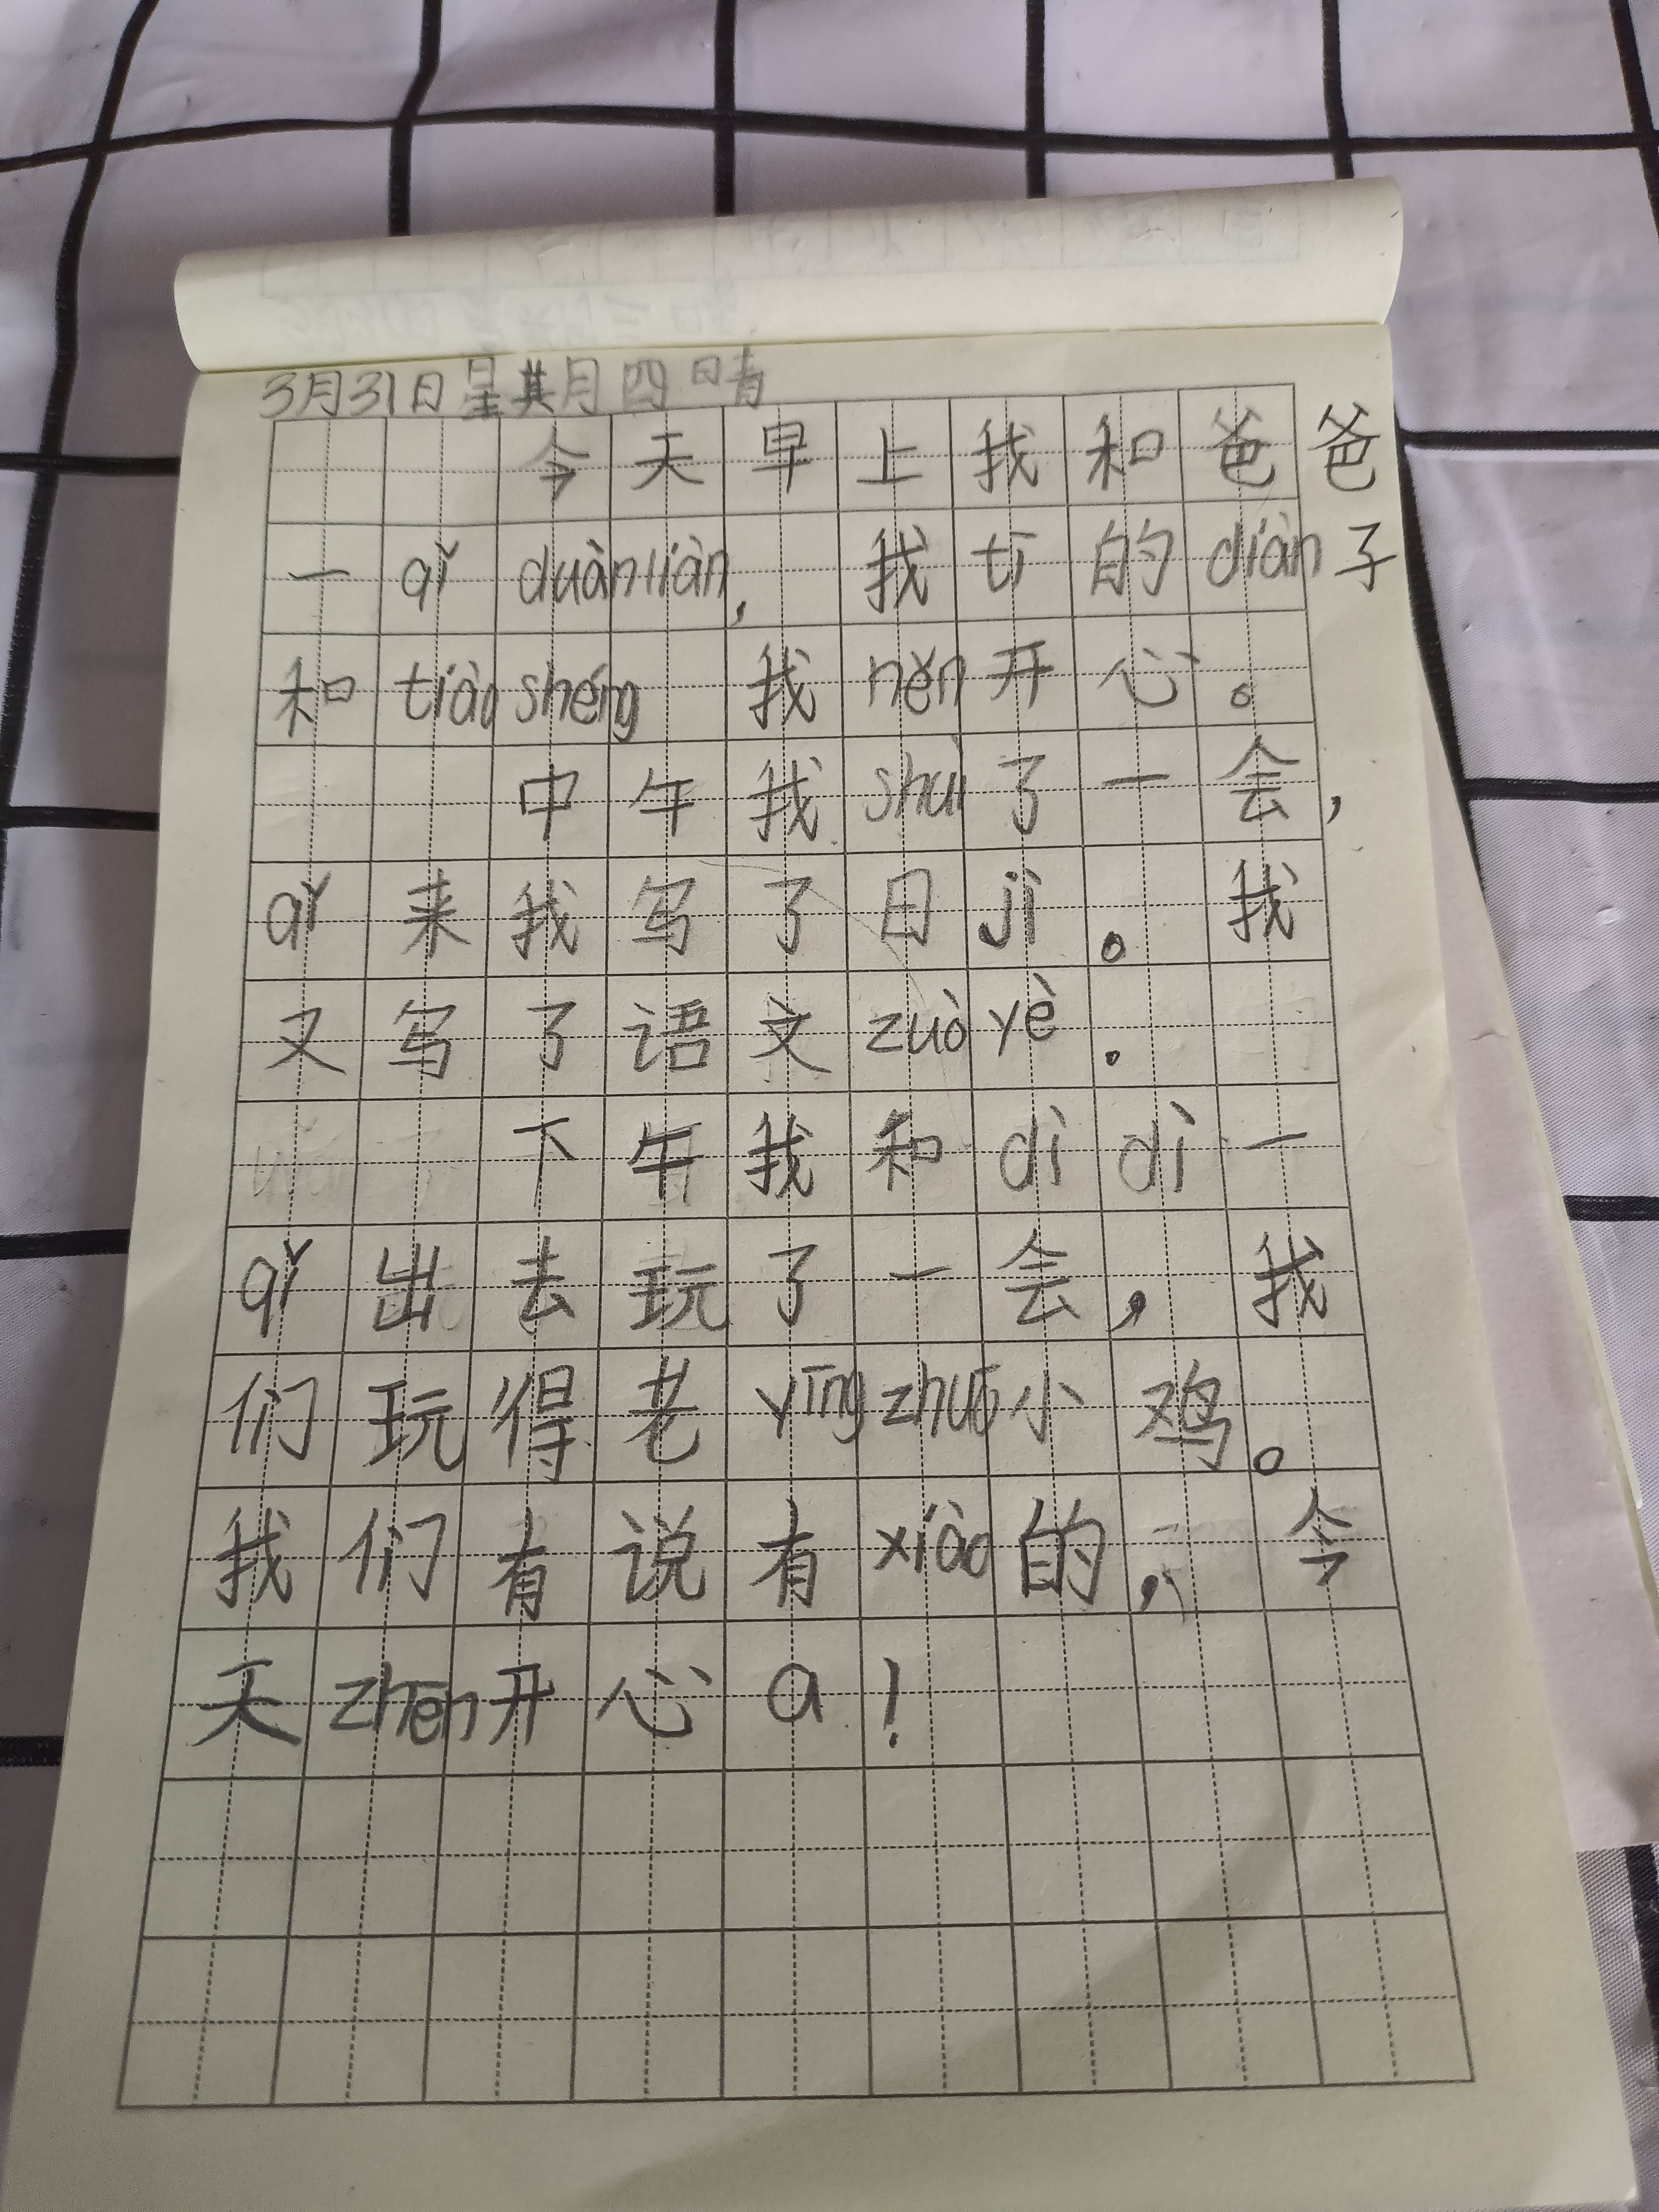 3月31日星期四 晴
今天早上我和爸爸
一qǐ duànliàn，我tī的diàn子
和tiàoshéng 我hěn开心。
中午我shuì了一会，
qǐ来我写了日jì。我
又写了语文zuòyè.
下午我和dì dì一
qǐ出去玩了一会，我
们玩得老yīngzhuō小鸡。
我们有说有xiào的，今
天zhēn开心a！